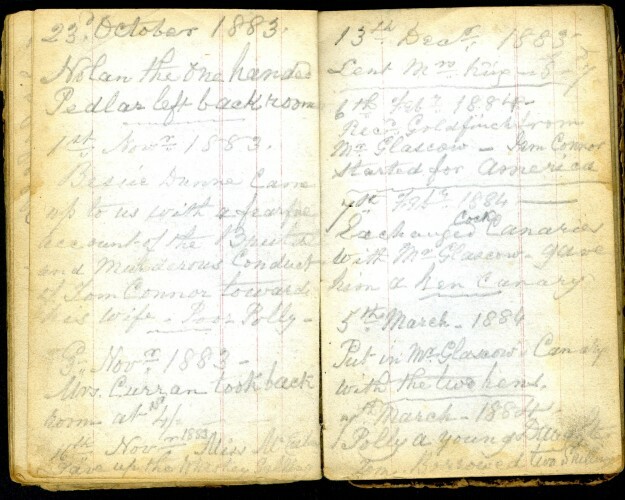 23d October 1883.
Nolan the one handed
Pedlar left back room
1st Novr 1883.
Bessie Dunne Came
up to us with a fearful
account of the Brutal
and Murderous Conduct
of Tom Connor towards
his wife - Poor Polly -
Novr 1883 -
Mrs. Curran took back
room at 4/-
16th Novr 1883 Miss
gave up the Whiskey
13th Decr. 1883
Lent Mrs
6th Feby 1884 -
Recd Goldfinch from
Mr Glascow - Tom Connor
Started for America
Feby 1884
Exchanged Cock Canaries
with Mr Glascow - gave
him a Hen Canary
5th March - 1884
Put in Mr Glascow's Canary
with the two hens.
March - 1884 -
Polly a young
Tom Borrowed two